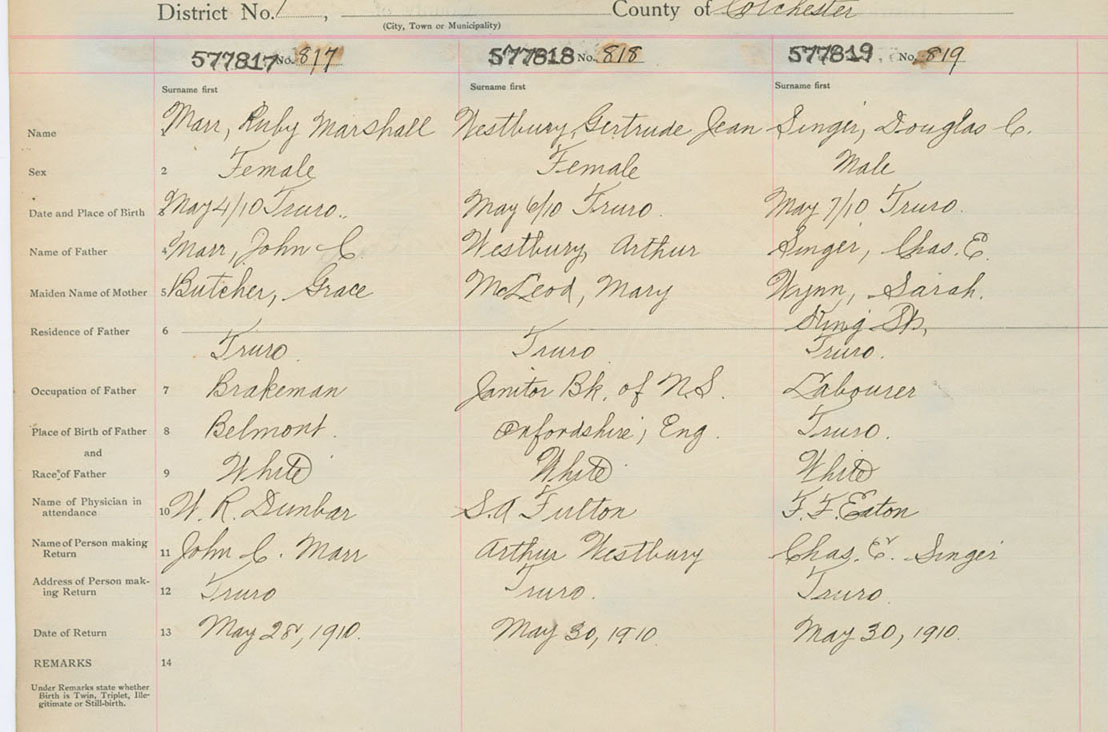 District No. 1, County of Colchester
(City, Town or Municipality)
577817 No. 817 577818 No. 818 577819 No. 819
Surname first Surname first Surname first
Name 1 Marr, Ruby Marshall Westbury, Gertrude Jean Singer, Douglas C.
Sex 2 Female Female Male
Date and Place of Birth 3 May 4/10 Truro. May 6/10 Truro. May 7/10 Truro.
Name of Father 4 Marr, John C. Westbury, Arthur Singer, Chas. E.
Maiden Name of Mother 5 Butcher, Grace McLeod, Mary Wynn, Sarah.
King St.,
Residence of Father 6 Truro. Truro Truro.
Occupation of Father 7 Brakeman Janitor Bk. of N.S. Labourer
Place of Birth of Father 8 Belmont. Oxfordshire, Eng. Truro.
and
Race of Father 9 White White White
Name of Physician in
attendance 10 W. R. Dunbar S.A Fulton F. F. Eaton
Name of Person making
Return 11 John C. Marr Arthur Westbury Chas. E. Singer
Address of Person mak-
ing Return 12 Truro Truro. Truro.
Date of Return 13 May 28, 1910. May 30, 1910 May 30, 1910.
REMARKS 14
Under Remarks state whether
Birth is Twin, Triplet, Ille-
gitimate or Still-birth.